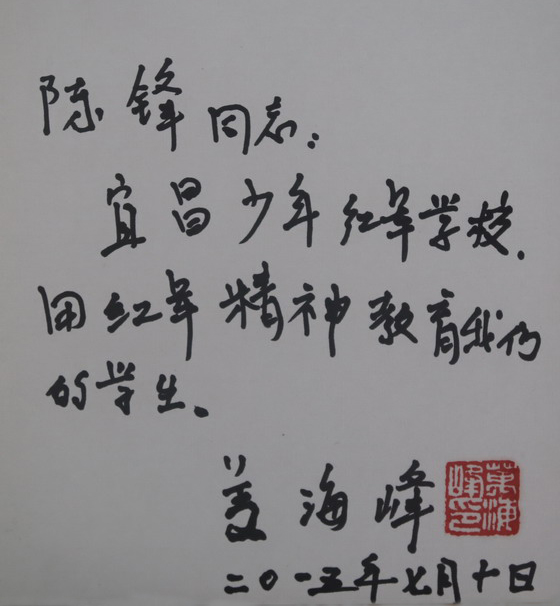 陈锋同志：
宜昌少年红军学校.
用红军精神教育我们
的学生。
萬海峰
二〇一五年七月十日
萬海峰印